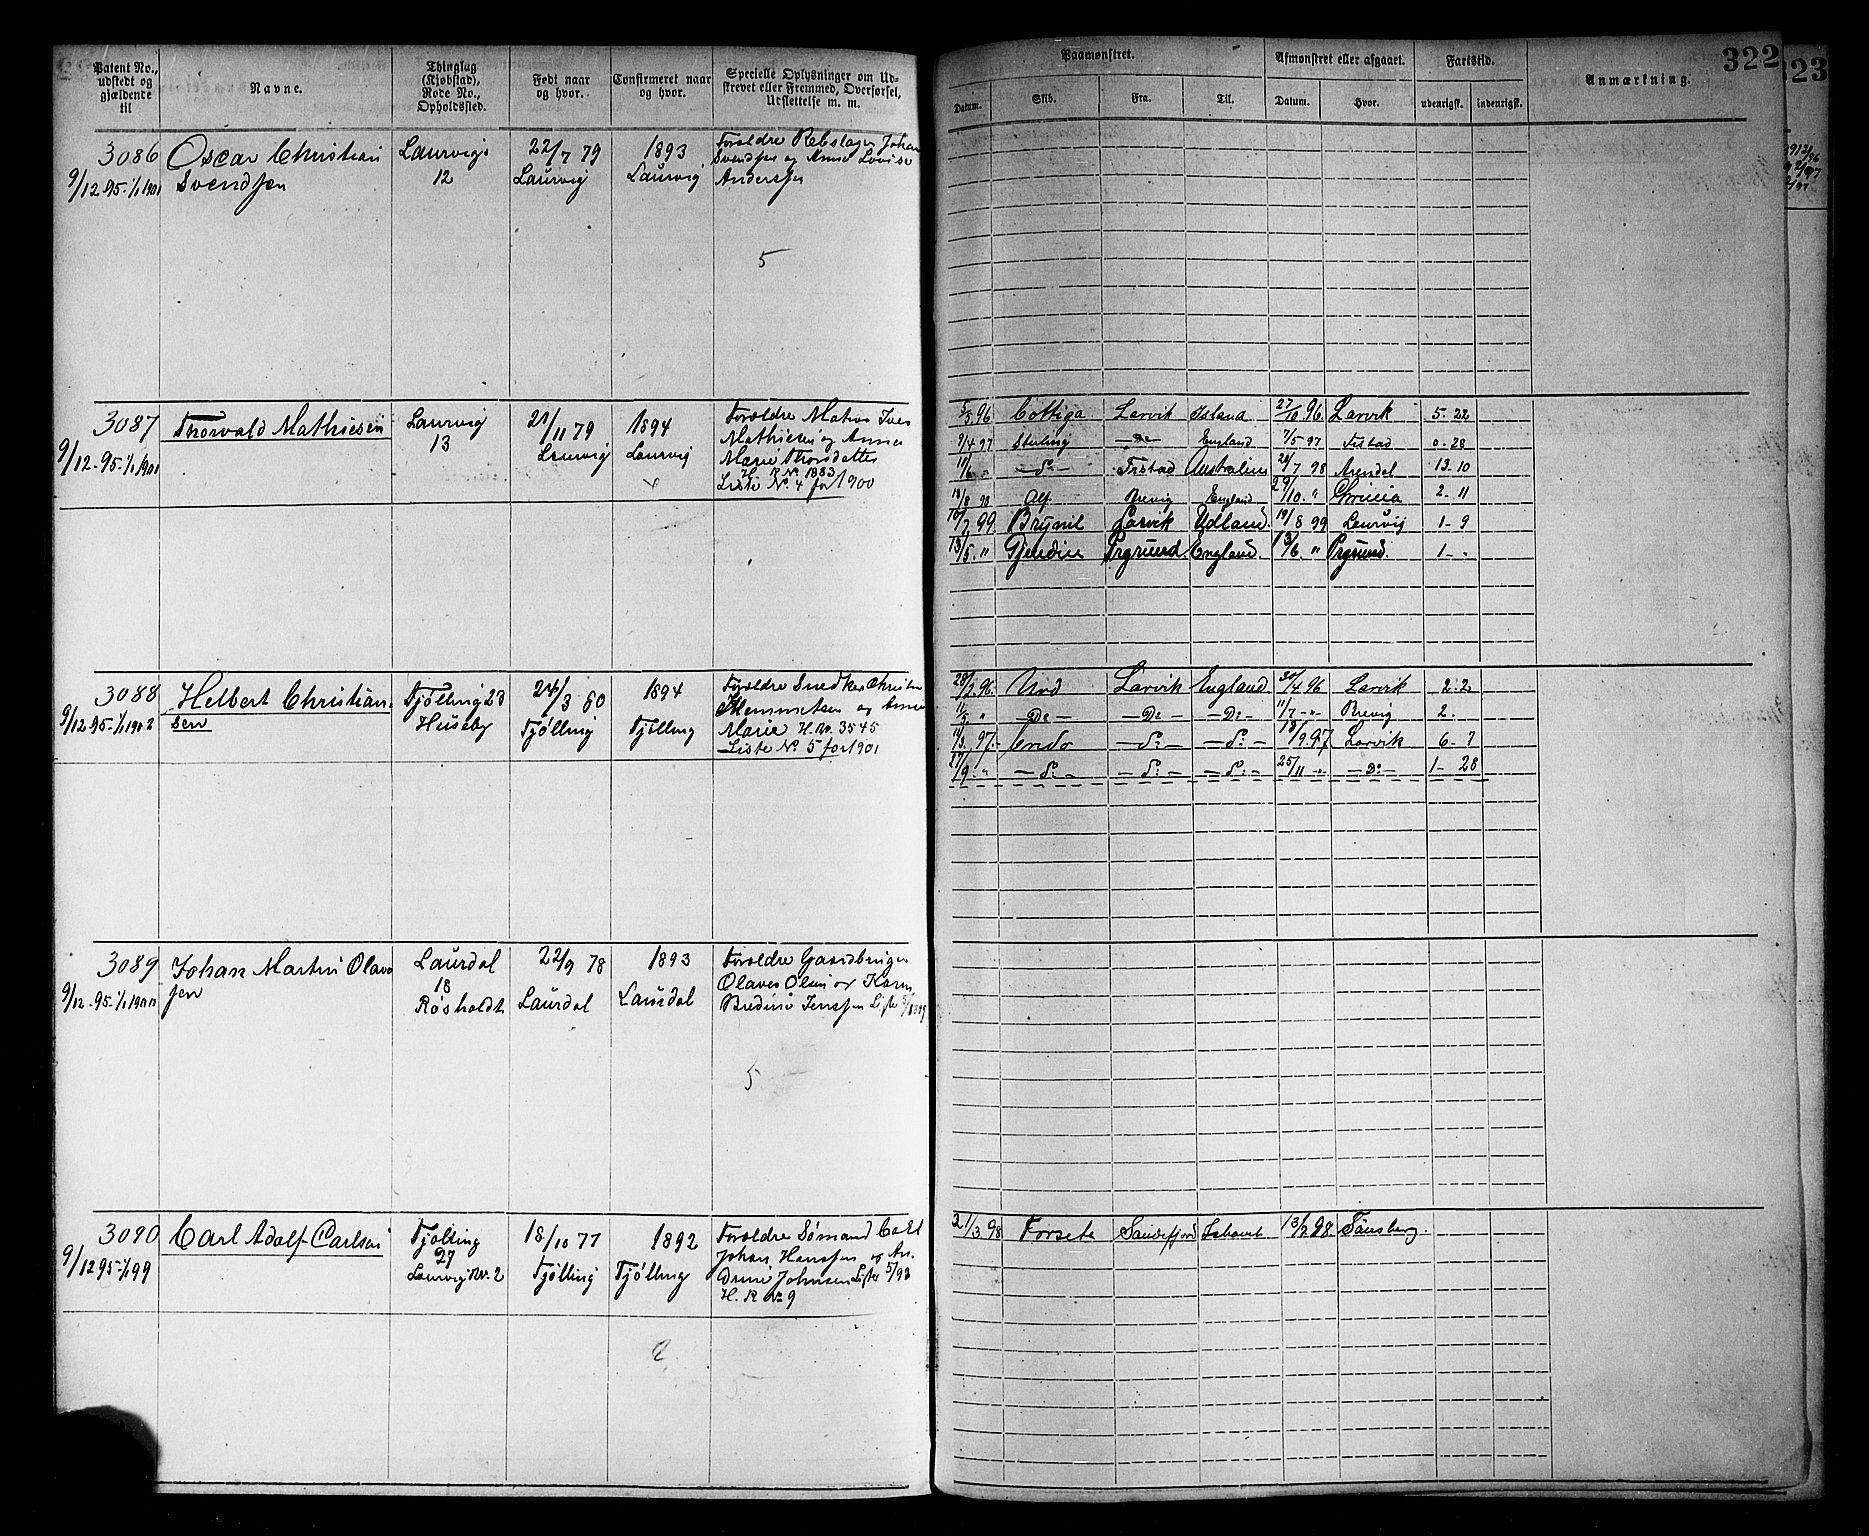 Patent No., udstedt og gjældende til
Navne.
Thinglag (Kjøbstad), Rode No., Opholdssted.
Født naar og hvor.
Confirmeret naar og hvor.
Specielle Oplysninger om Udskrevet eller Fremmed, Overførsel, Udslettelse m. m.
Paamønstret.
Afmønstret eller afgaaet.
Fartstid.
Anmærkning.
322
323
Datum.
Skib.
Fra.
Til.
Datum.
Hvor.
udenrigsk.
indenrigsk.
3086 Oscar Christian Laurvigs 22/7 79 1893 Forældre Rebslager Johan
9/12-95-1/1 1901 Svendsen 12 Laurvig Laurvig Svendsen og Anne Lovise
Andersen
5
3087 Thorvald Mathiesen Laurvig 21/11 79 1894 Forældre
9/12-95-1/1 1901 13 Laurvig Laurvig Mathiesen og Anne
Marie Thorsdatter
H. R. No. 1883
Liste No. 4 for 1900
5/5 96 Cottiga Larvik Island 27/10 96 Larvik 5-22
9/4 97 Sterling -Do- England 7/5 97 Fistad 0-28
-Do- Fistad Australien 7 98 Arendal 13-10
18/8 98 Alf Brevig England 29/10 " 2-11
99 Brynil Larvik Udland 19/8 99 Laurvig 1-9
13/5 " Gjendin Prgrund England. 13/6 " Prgrund. 1- -
3088 Helbert Christian- Tjølling 23 24/3 80 1894 Forældre Snedker
9/12-95-1/1 1902 sen Huseby Tjølling Tjølling og Anne
Maria H. No. 3545
Liste No 5 for 1901
28/2 96 Urd Larvik England 30/4 96 Larvik 2-2
" -Do- -Do- -Do- 11/7 - Brevig 2-
97 Credo -Do- -Do- 9 97 Larvik 6-7
27/9 " -Do- -Do- -Do- 25/11 - -Do- 1-28
3089 Johan Martin Olav- Laurdal 22/9 78 1893 Forældre Gaardbruger
9/12-95-1/1 1900 sen 18 Laurdal Laurdal Olaves Olsen og Karen
Røsholdt Jenssen Liste 5/1899
5
3090 Carl Adolf Carlsen Tjølling 18/10 77 1892 Forældre Sømand Carl
9/12 95-1/1 99 27 Tjølling Tjølling Johan Hanssen og An-
Laurvig No. 2 drine Johnsen Liste 5/98
H. R No 9
21/3 98 Forseta Sandefjord Ishavet 98 Tønsberg.